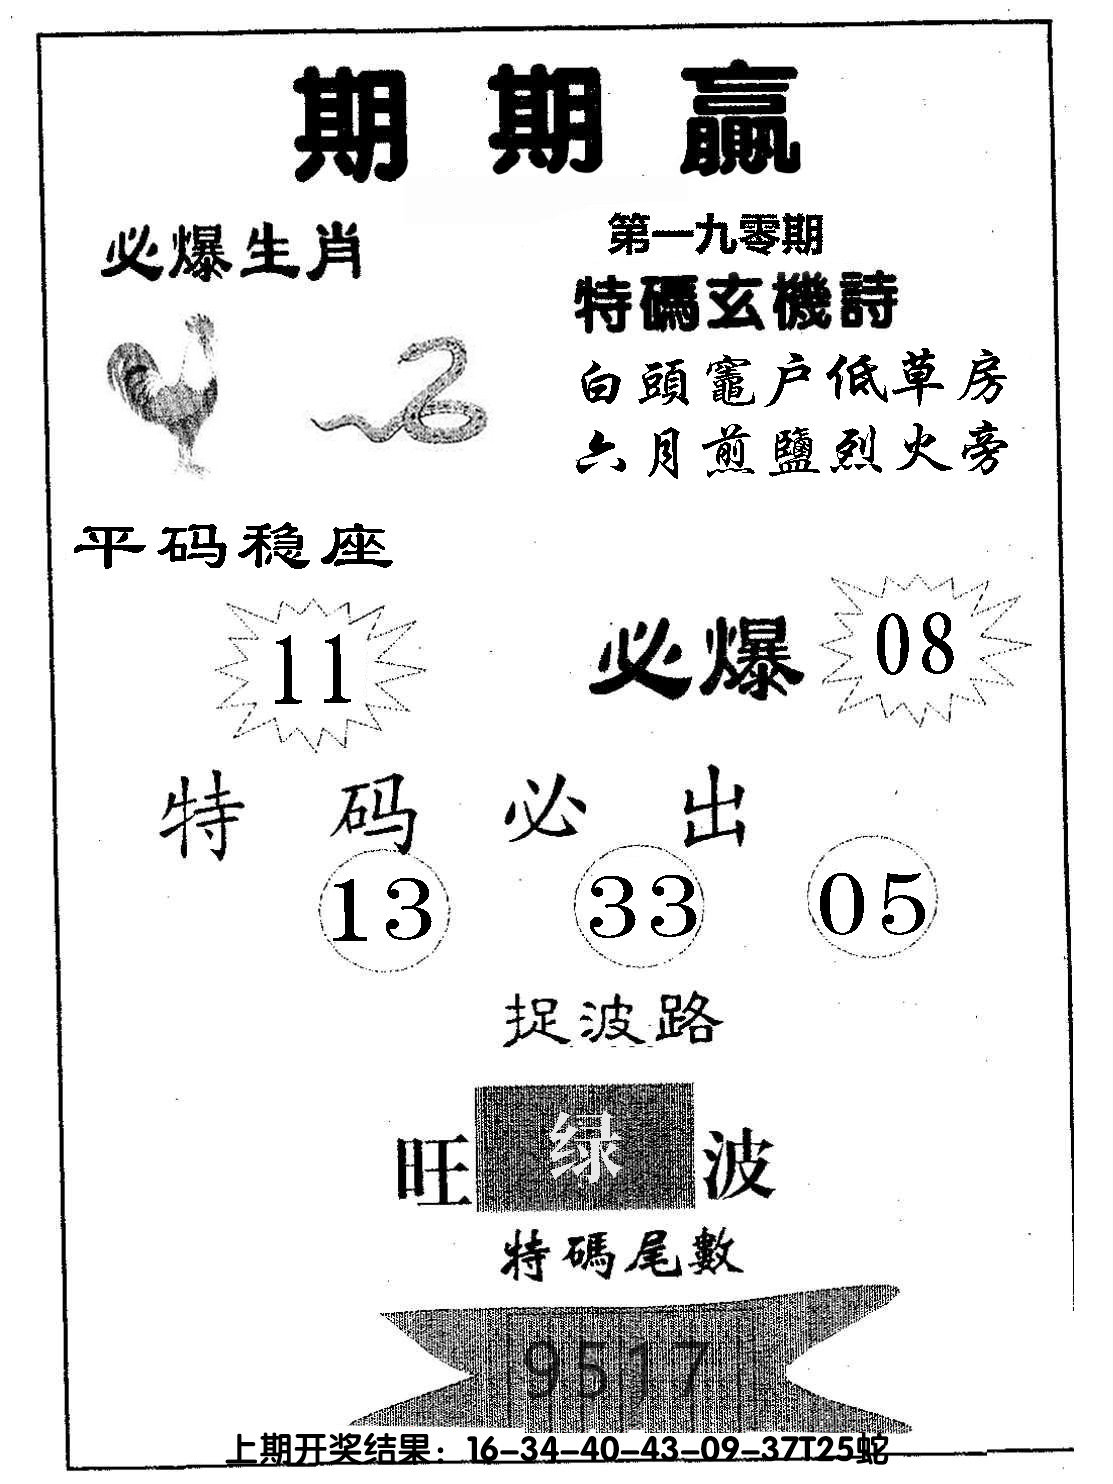 期期赢
必爆生肖
第一九零期
特碼玄機詩
白頭竈户低草房
六月煎鹽烈火旁
平码稳座
11
必爆
08
特码必出
13 33 05
捉波路
旺绿波
特碼尾數
9517
上期开奖结果：16-34-40-43-09-37T25蛇